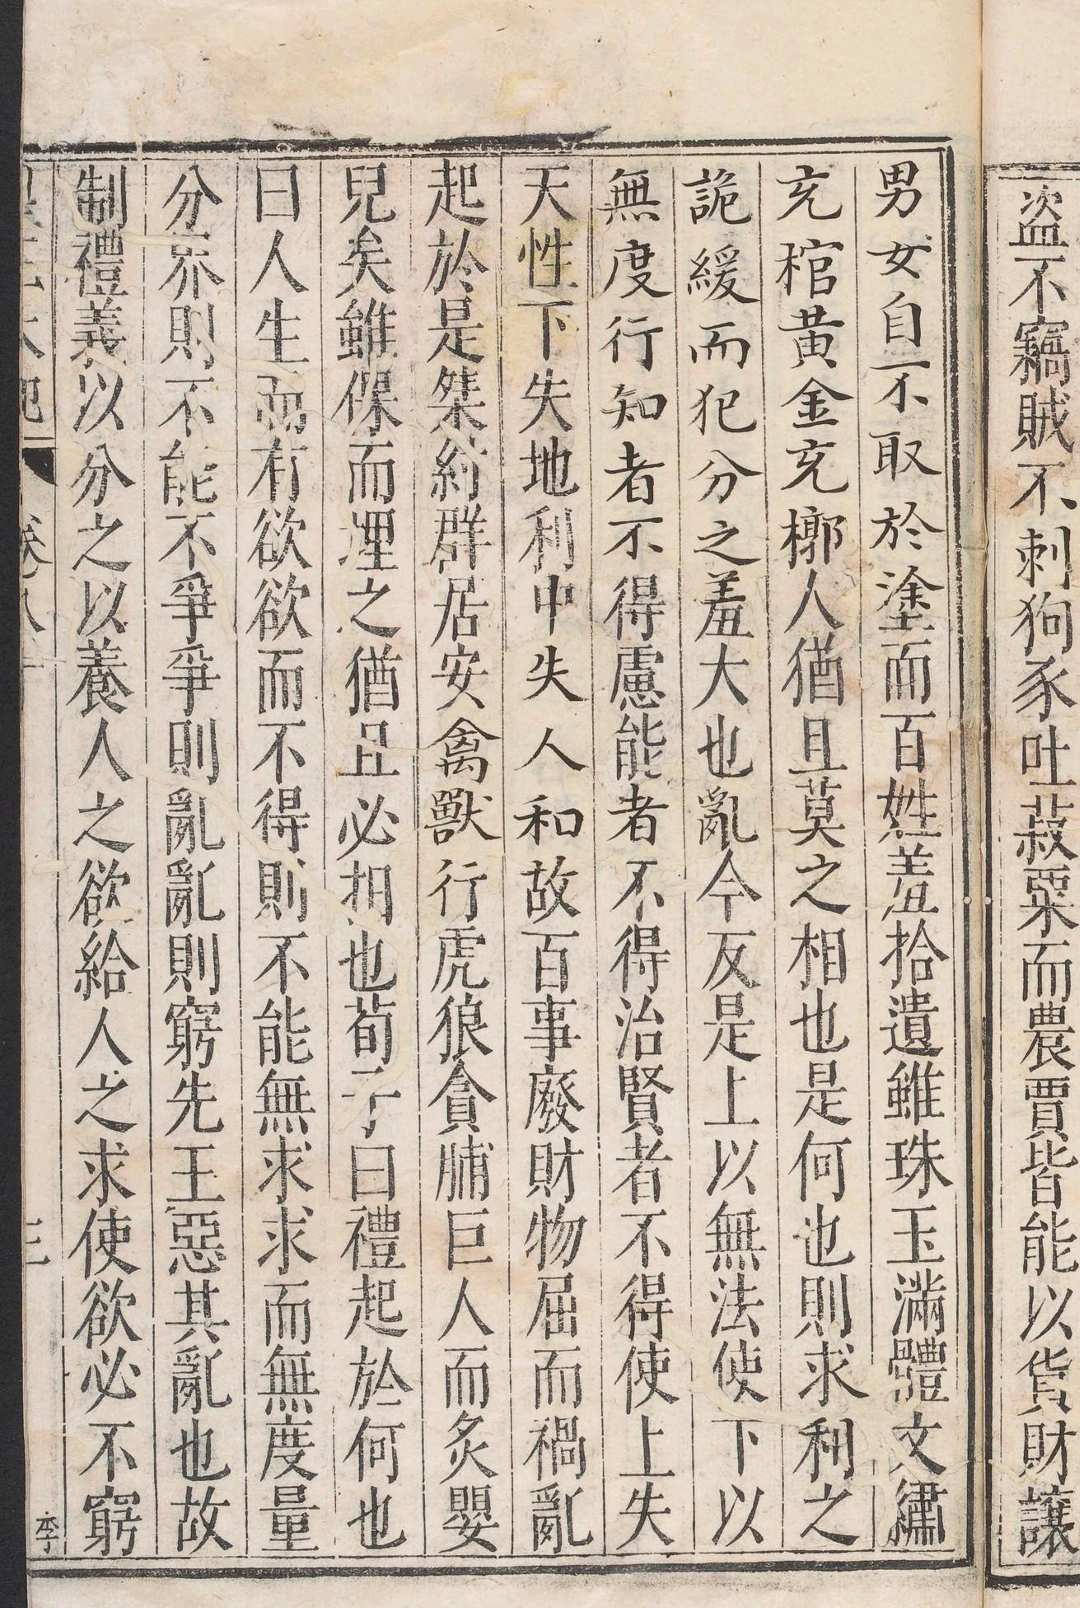 盜不竊賊不刺狗豕吐菽粟而農賈皆能以貨財讓
男女自不取於塗而百姓羞拾遺雖珠玉滿體文繡
充棺黃金充槨人猶且莫之相也是何也則求利之
詭緩而犯分之羞大也亂今反是上以無法使下以
無度行知者不得慮能者不得治賢者不得使上失
天性下失地利中失人和故百事廢財物屈而禍亂
起於是桀紂群居安禽獸行虎狼貪脯巨人而炙嬰
兒矣雖倮而埋之猶且必扣也荀子曰禮起於何也
曰人生而有欲欲而不得則不能無求求而無度量
分界則不能不爭爭則亂亂則窮先王惡其亂也故
制禮義以分之以養人之欲給人之求使欲必不窮
卷八十
三
李